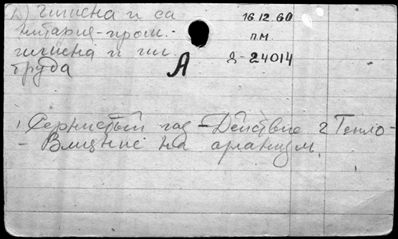 Гигиена и са
нитария - пром.
гигиена и гиг.
труда
16.12.60
п.м.
А
Д-24014
1 Сернистый газ - Действие 2 Тепло-
- Влияние на организм